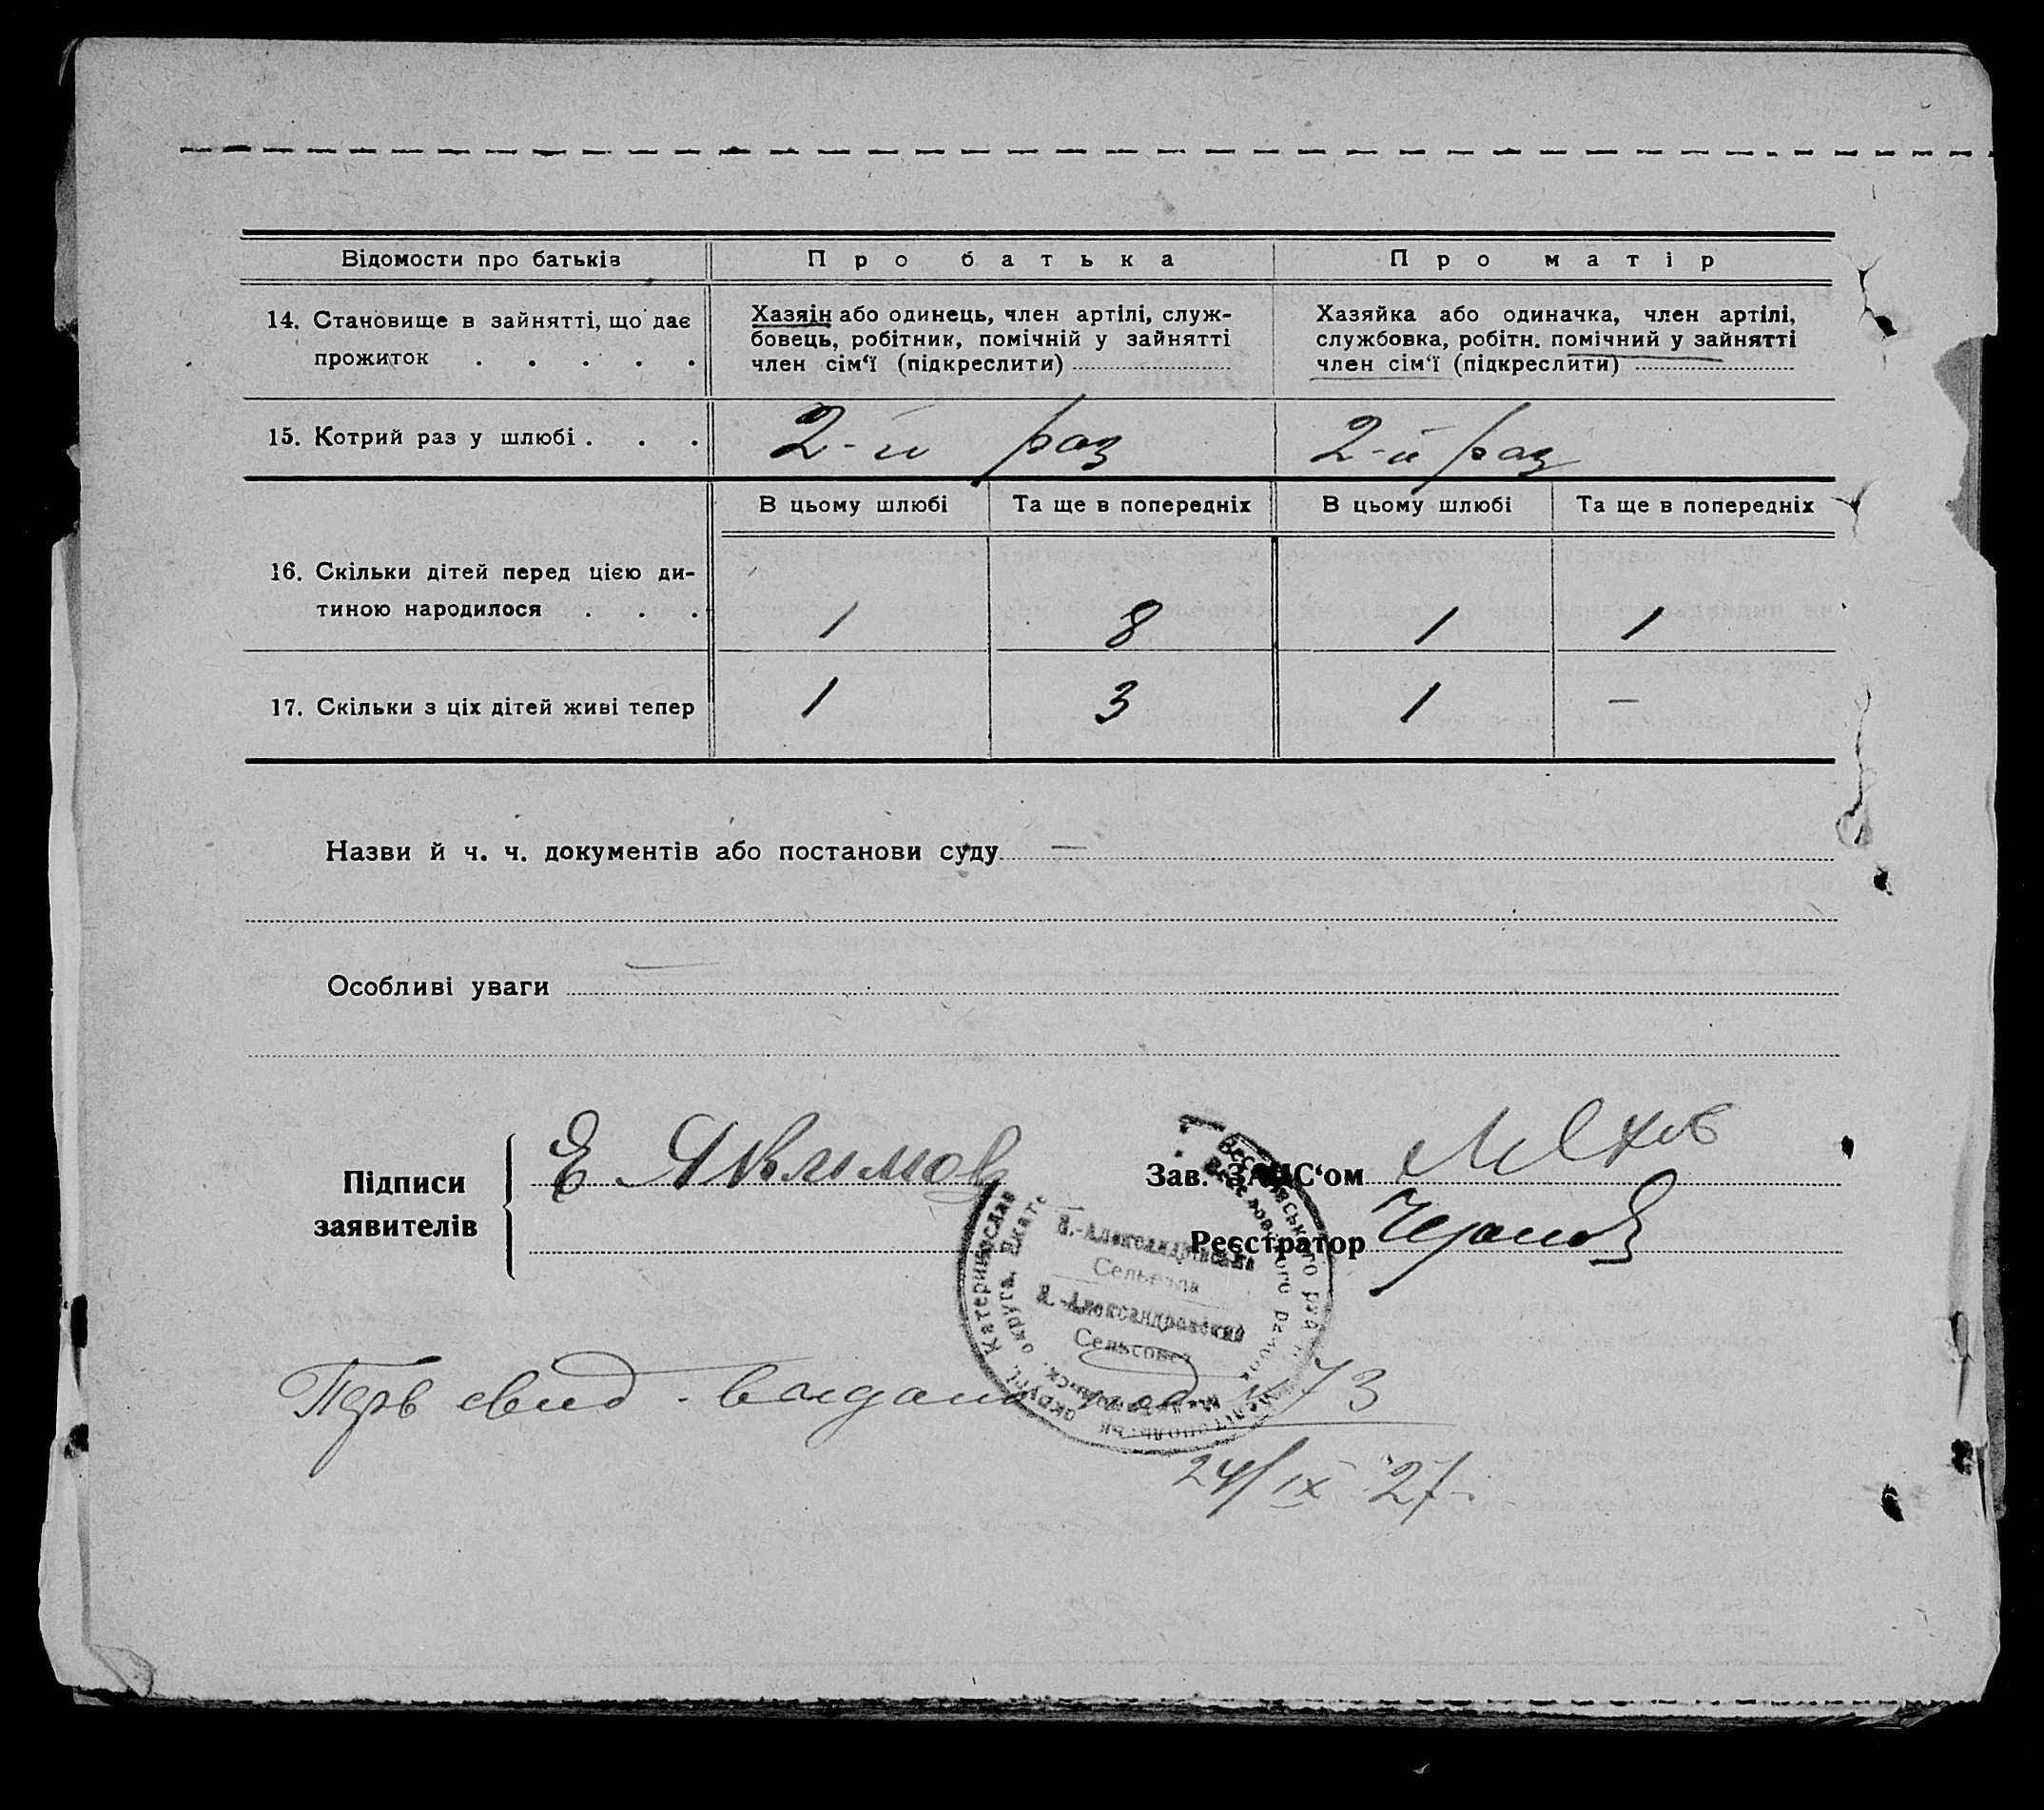 Відомости про батьків
Про батька
Про матір
14. Становище в зайнятті, що дає
прожиток . . . . .
Хазяїн або одинець, член артілі, служ-
бовець, робітник, помічній у зайнятті
член сім‘ї (підкреслити)
Хазяйка або одиначка, член артілі,
службовка, робітн. помічний у зайнятті
член сім‘ї (підкреслити)
15. Котрий раз у шлюбі . . .
2-й раз
2-й раз
В цьому шлюбі
Та ще в попередніх
В цьому шлюбі
Та ще в попередніх
16. Скільки дітей перед цією ди-
тиною народилося . . .
1
8
1
1
17. Скільки з ціх дітей живі тепер
1
3
1
—
Назви й ч. ч. документів або постанови суду —
Особливі уваги —
Підписи
заявителів
Е Якимов
Зав. ЗАПС‘ом
Реєстратор
Н.-Александрівська
Сельрада
Н.-Александровский
Сельсовет
Перв свид. выдано 73
24/IX 27